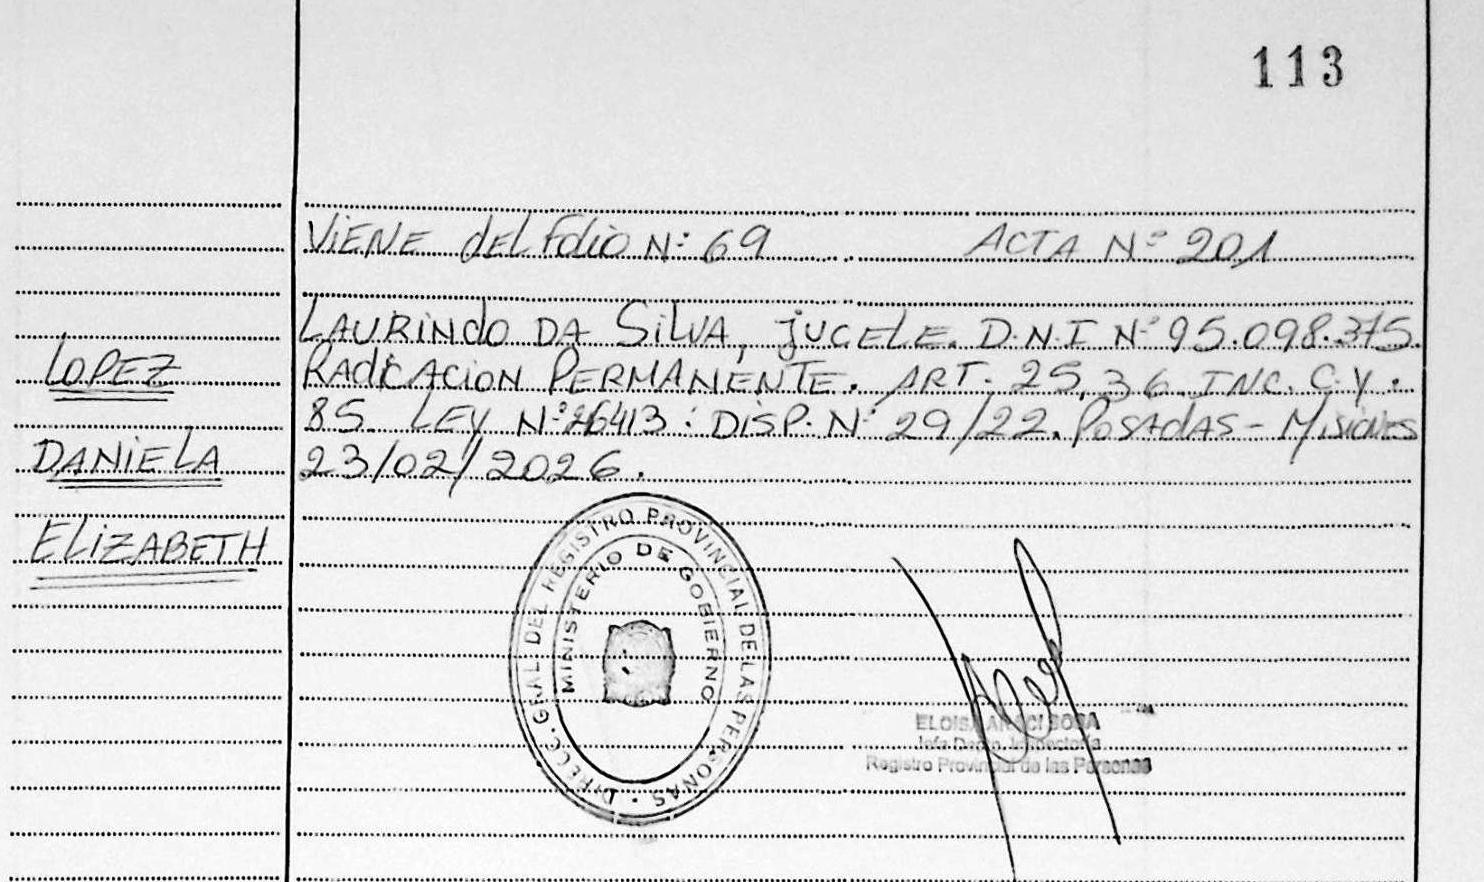 113
VIENE del Folio Nº 69 ACTA Nº 201
LAURINDO DA SILVA, JUCELE. D.N.I Nº 95.098.375.
RADICACION PERMANENTE. ART. 25, 36 INC. C. Y.
85. LEY Nº 26413 : DISP. Nº 29/22. POSADAS - MISIONES
23/02/2026.
LOPEZ
DANIELA
ELIZABETH
DIRECC. GRAL. DEL REGISTRO PROVINCIAL DE LAS PERSONAS
MINISTERIO DE GOBIERNO
ELOISA ARACI SOSA
Jefa Dpto. Inspectoría
Registro Provincial de las Personas